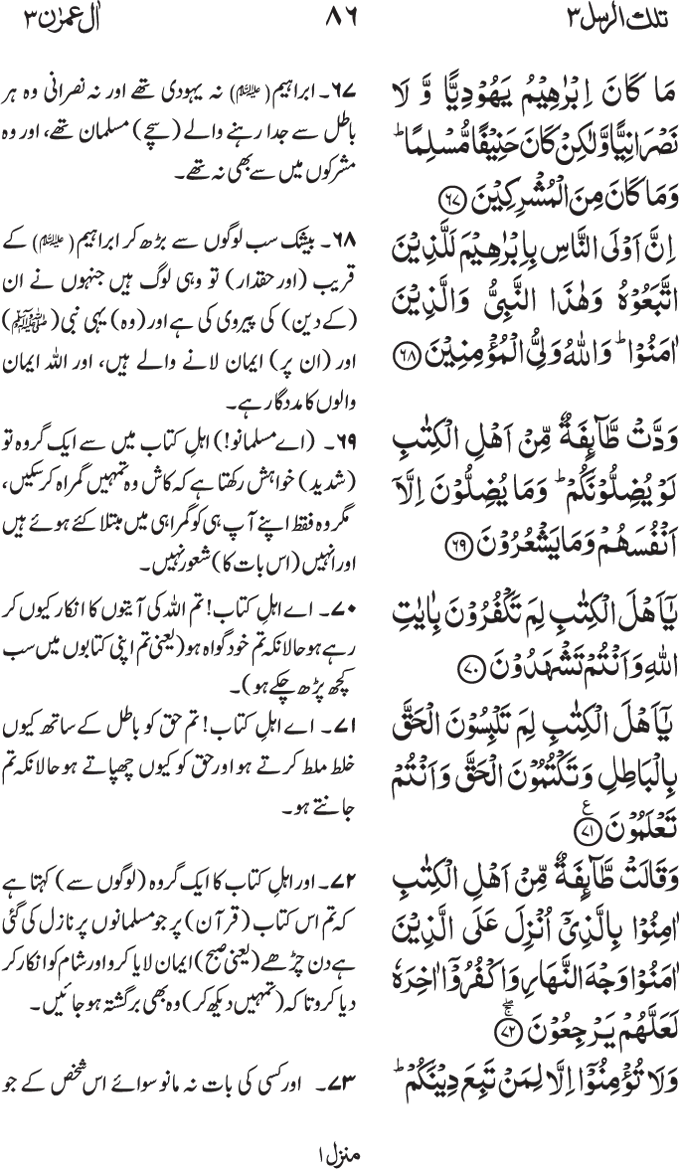 تلك الرسل ٣
٨٦
اٰل عمرٰن ٣
مَا كَانَ اِبْرٰهِيْمُ يَهُوْدِيًّا وَّ لَا
نَصْرَانِيًّا وَّلٰكِنْ كَانَ حَنِيْفًا مُّسْلِمًا ؕ
وَمَا كَانَ مِنَ الْمُشْرِكِيْنَ ۝۶۷
اِنَّ اَوْلَى النَّاسِ بِاِبْرٰهِيْمَ لَلَّذِيْنَ
اتَّبَعُوْهُ وَهٰذَا النَّبِىُّ وَالَّذِيْنَ
اٰمَنُوْا ؕ وَاللّٰهُ وَلِىُّ الْمُؤْمِنِيْنَ ۝۶۸
وَدَّتْ طَّآىِٕفَةٌ مِّنْ اَهْلِ الْكِتٰبِ
لَوْ يُضِلُّوْنَكُمْ ؕ وَمَا يُضِلُّوْنَ اِلَّاۤ
اَنْفُسَهُمْ وَمَا يَشْعُرُوْنَ ۝۶۹
يٰۤاَهْلَ الْكِتٰبِ لِمَ تَكْفُرُوْنَ بِاٰيٰتِ
اللّٰهِ وَاَنْتُمْ تَشْهَدُوْنَ ۝۷۰
يٰۤاَهْلَ الْكِتٰبِ لِمَ تَلْبِسُوْنَ الْحَقَّ
بِالْبَاطِلِ وَتَكْتُمُوْنَ الْحَقَّ وَاَنْتُمْ
تَعْلَمُوْنَ ۝۷۱ ع
وَقَالَتْ طَّآىِٕفَةٌ مِّنْ اَهْلِ الْكِتٰبِ
اٰمِنُوْا بِالَّذِىْۤ اُنْزِلَ عَلَى الَّذِيْنَ
اٰمَنُوْا وَجْهَ النَّهَارِ وَاكْفُرُوْۤا اٰخِرَهٗ
لَعَلَّهُمْ يَرْجِعُوْنَ ۝۷۲
وَلَا تُؤْمِنُوْۤا اِلَّا لِمَنْ تَبِعَ دِيْنَكُمْ ؕ
۶۷۔ ابراہیم (علیہ السلام) نہ یہودی تھے اور نہ نصرانی وہ ہر
باطل سے جدا رہنے والے (سچے) مسلمان تھے، اور وہ
مشرکوں میں سے بھی نہ تھے۔
۶۸۔ بیشک سب لوگوں سے بڑھ کر ابراہیم (علیہ السلام) کے
قریب (اور حقدار) تو وہی لوگ ہیں جنہوں نے ان
(کے دین) کی پیروی کی ہے اور (وہ) یہی نبی (ﷺ)
اور (ان پر) ایمان لانے والے ہیں، اور اللہ ایمان
والوں کا مددگار ہے۔
۶۹۔ (اے مسلمانو!) اہلِ کتاب میں سے ایک گروہ تو
(شدید) خواہش رکھتا ہے کہ کاش وہ تمہیں گمراہ کر سکیں،
مگر وہ فقط اپنے آپ ہی کو گمراہی میں مبتلا کئے ہوئے ہیں
اور انہیں (اس بات کا) شعور نہیں۔
۷۰۔ اے اہلِ کتاب! تم اللہ کی آیتوں کا انکار کیوں کر
رہے ہو حالانکہ تم خود گواہ ہو (یعنی تم اپنی کتابوں میں سب
کچھ پڑھ چکے ہو)۔
۷۱۔ اے اہلِ کتاب! تم حق کو باطل کے ساتھ کیوں
خلط ملط کرتے ہو اور حق کو کیوں چھپاتے ہو حالانکہ تم
جانتے ہو۔
۷۲۔ اور اہلِ کتاب کا ایک گروہ (لوگوں سے) کہتا ہے
کہ تم اس کتاب (قرآن) پر جو مسلمانوں پر نازل کی گئی
ہے دن چڑھے (یعنی صبح) ایمان لایا کرو اور شام کو انکار کر
دیا کرو تاکہ (تمہیں دیکھ کر) وہ بھی برگشتہ ہو جائیں۔
۷۳۔ اور کسی کی بات نہ مانو سوائے اس شخص کے جو
منزل ۱